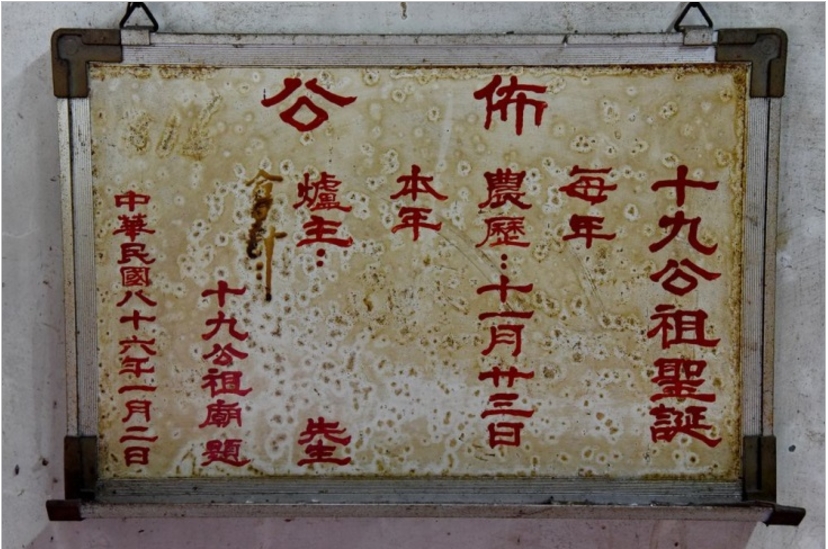 公佈
十九公祖聖誕
每年
農歷：十一月廿三日
本年
爐主：先生
十九公祖廟題
中華民國八十六年一月二日